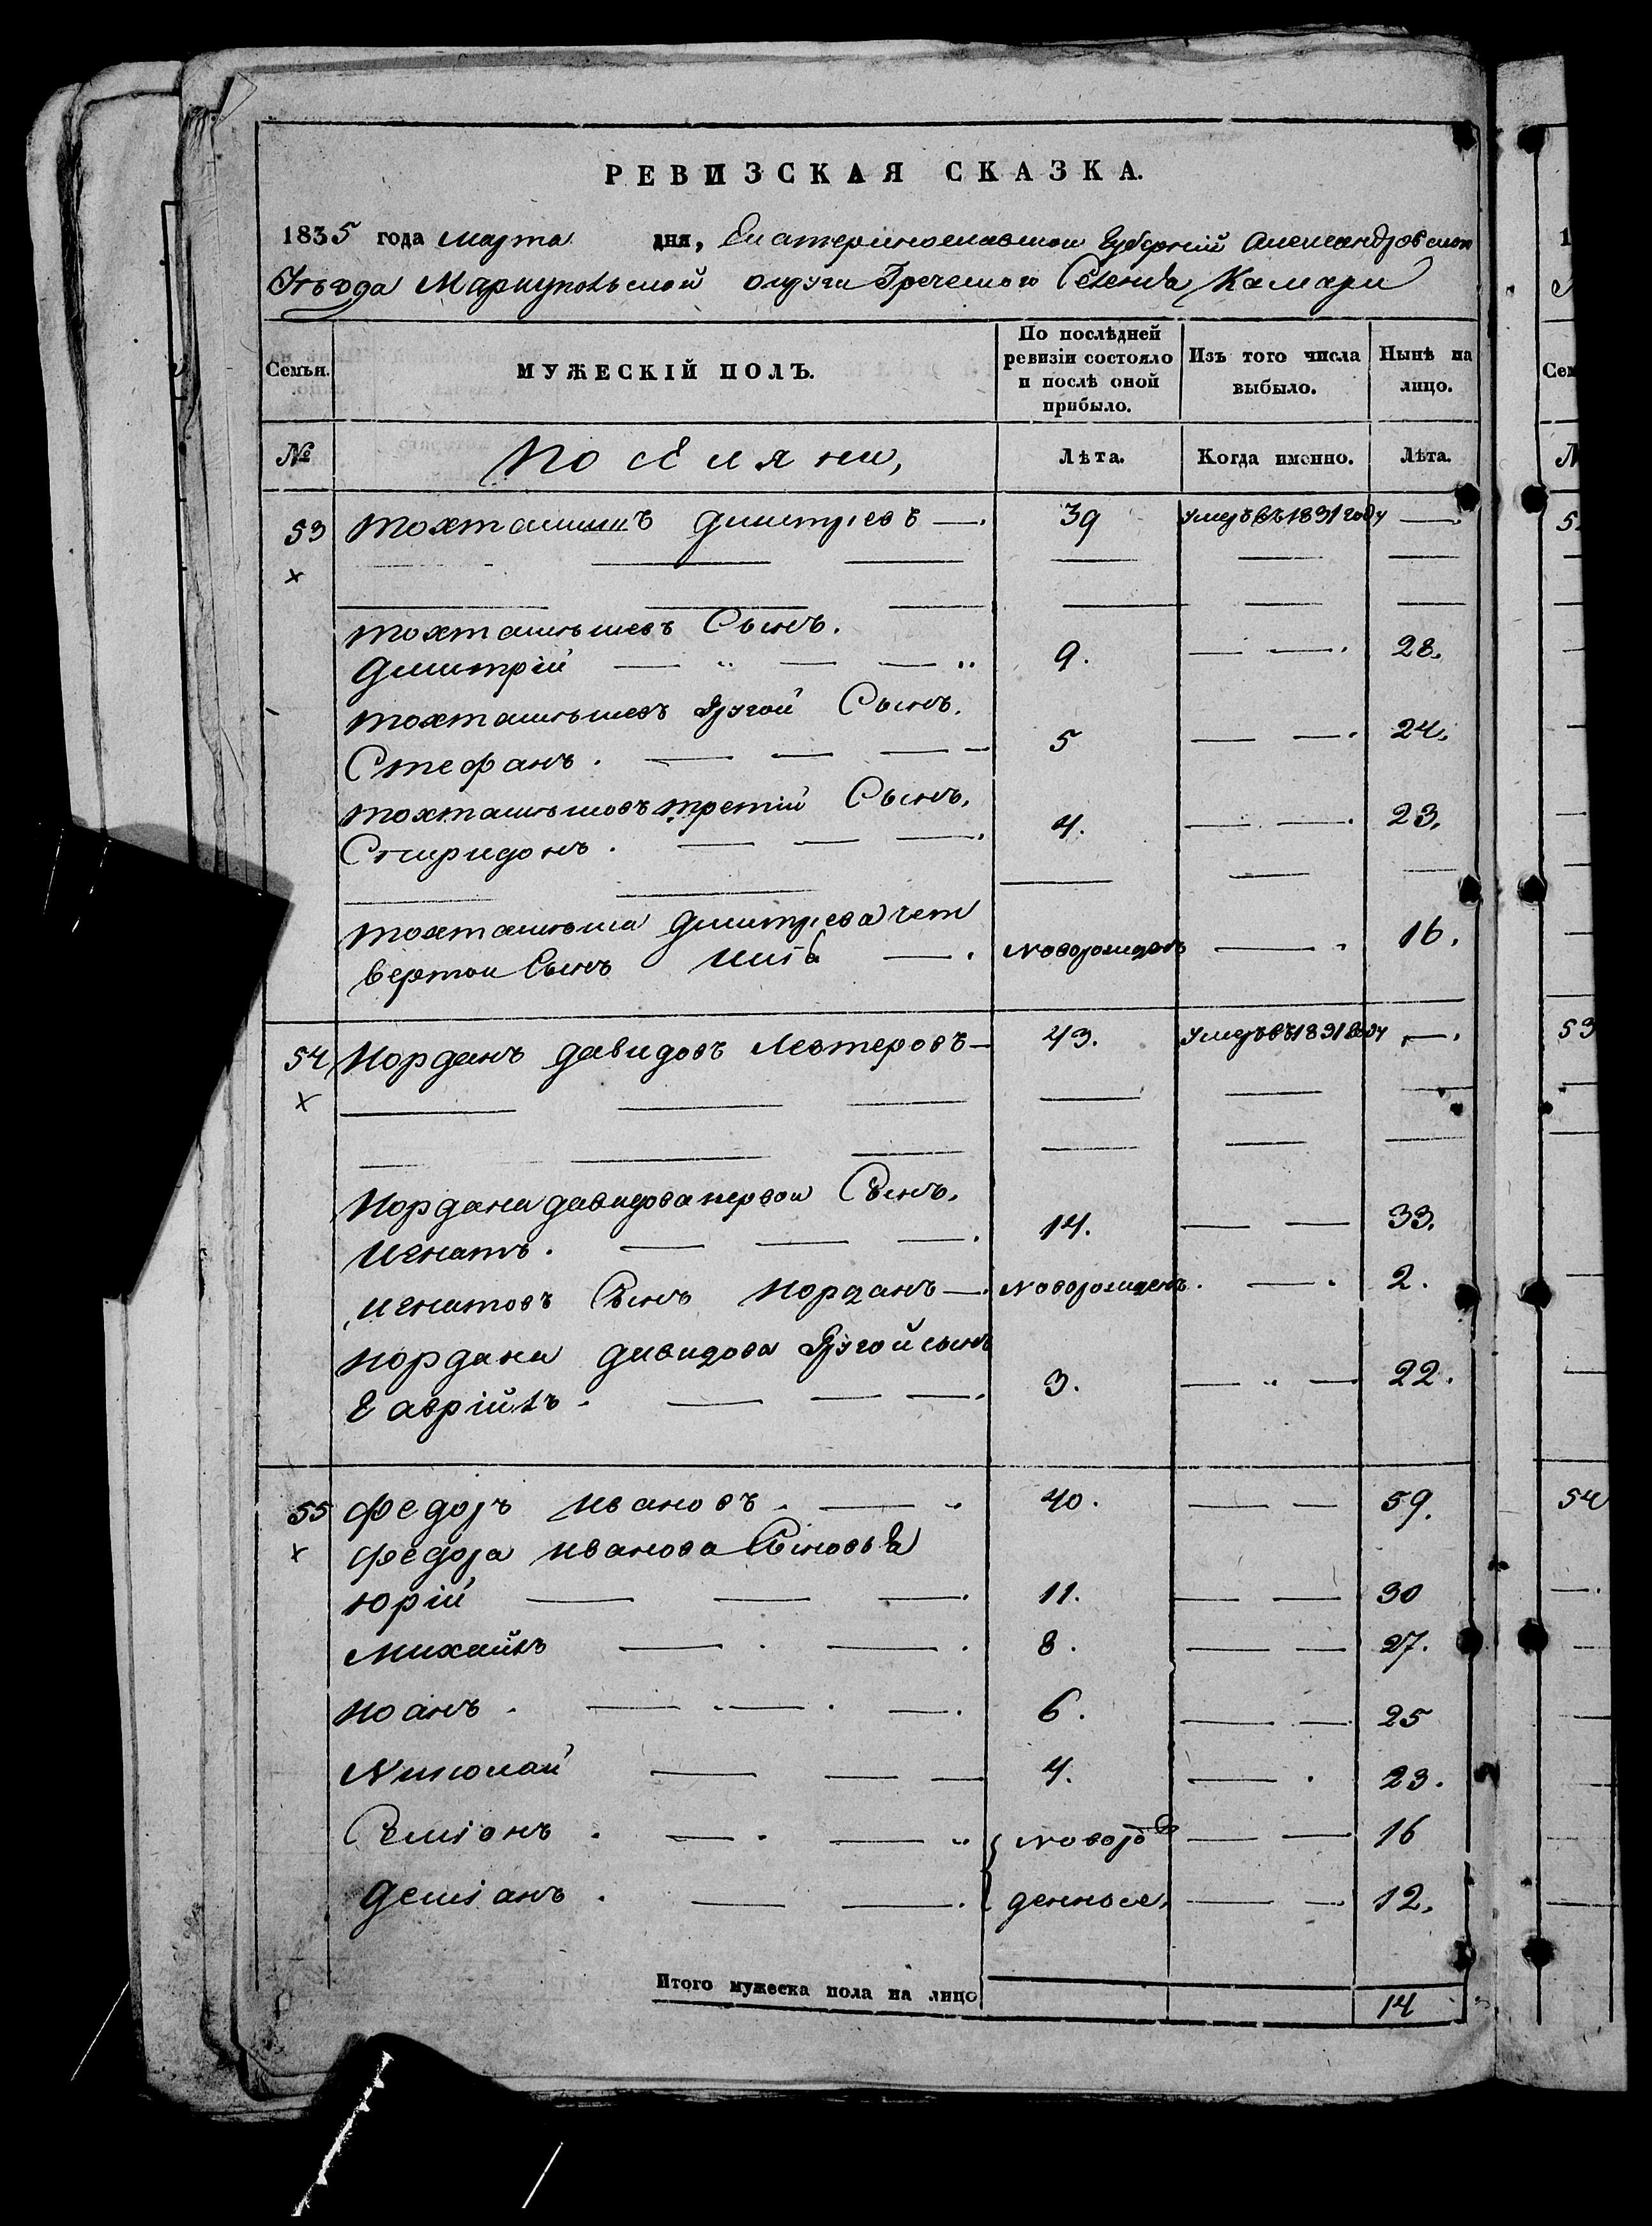 РЕВИЗСКАЯ СКАЗКА.
1835 года марта дня, Екатеринославскои Губернїй Александровскои
Уѣзда Мариупольской округи Греческого Селенїя Камари
Семьи. МУЖЕСКІЙ ПОЛЪ. По послѣдней ревизіи состояло и послѣ оной прибыло. Изъ того числа выбыло. Нынѣ на лицо.
№ Поселяни, Лѣта. Когда именно. Лѣта.
53 Тохтамишъ Дмитріевъ 39 умеръ въ 1831 году
Тохтамышевъ Сынъ.
Дмитрій 9. 28.
Тохтамышевъ другой Сынъ.
Стефанъ. 5 24.
Тохтамышовъ третій Сынъ.
Спиридонъ. 4. 23.
Тохтамыша Дмитріева чет
вертои Сынъ Новорожденъ 16.
54 Иорданъ Давидовъ Левтеровъ 43. умеръ въ 1831 году
Иордана Давидова первои Сынъ.
Игнатъ. 14. 33.
Игнатовъ Сынъ Иорданъ Новорожденъ. 2.
Иордана Давидова другой сынъ
Гаврійлъ. 3. 22.
55 Федоръ Ивановъ. 40. 59.
Федора Иванова Сыновья
Юрій 11. 30
Михайлъ 8. 27.
Иоанъ. 6. 25
Николай 4. 23.
Семіонъ. новорож 16
Деміанъ. денные. 12.
Итого мужеска пола на лицо 14
1
Сем
№
53
54